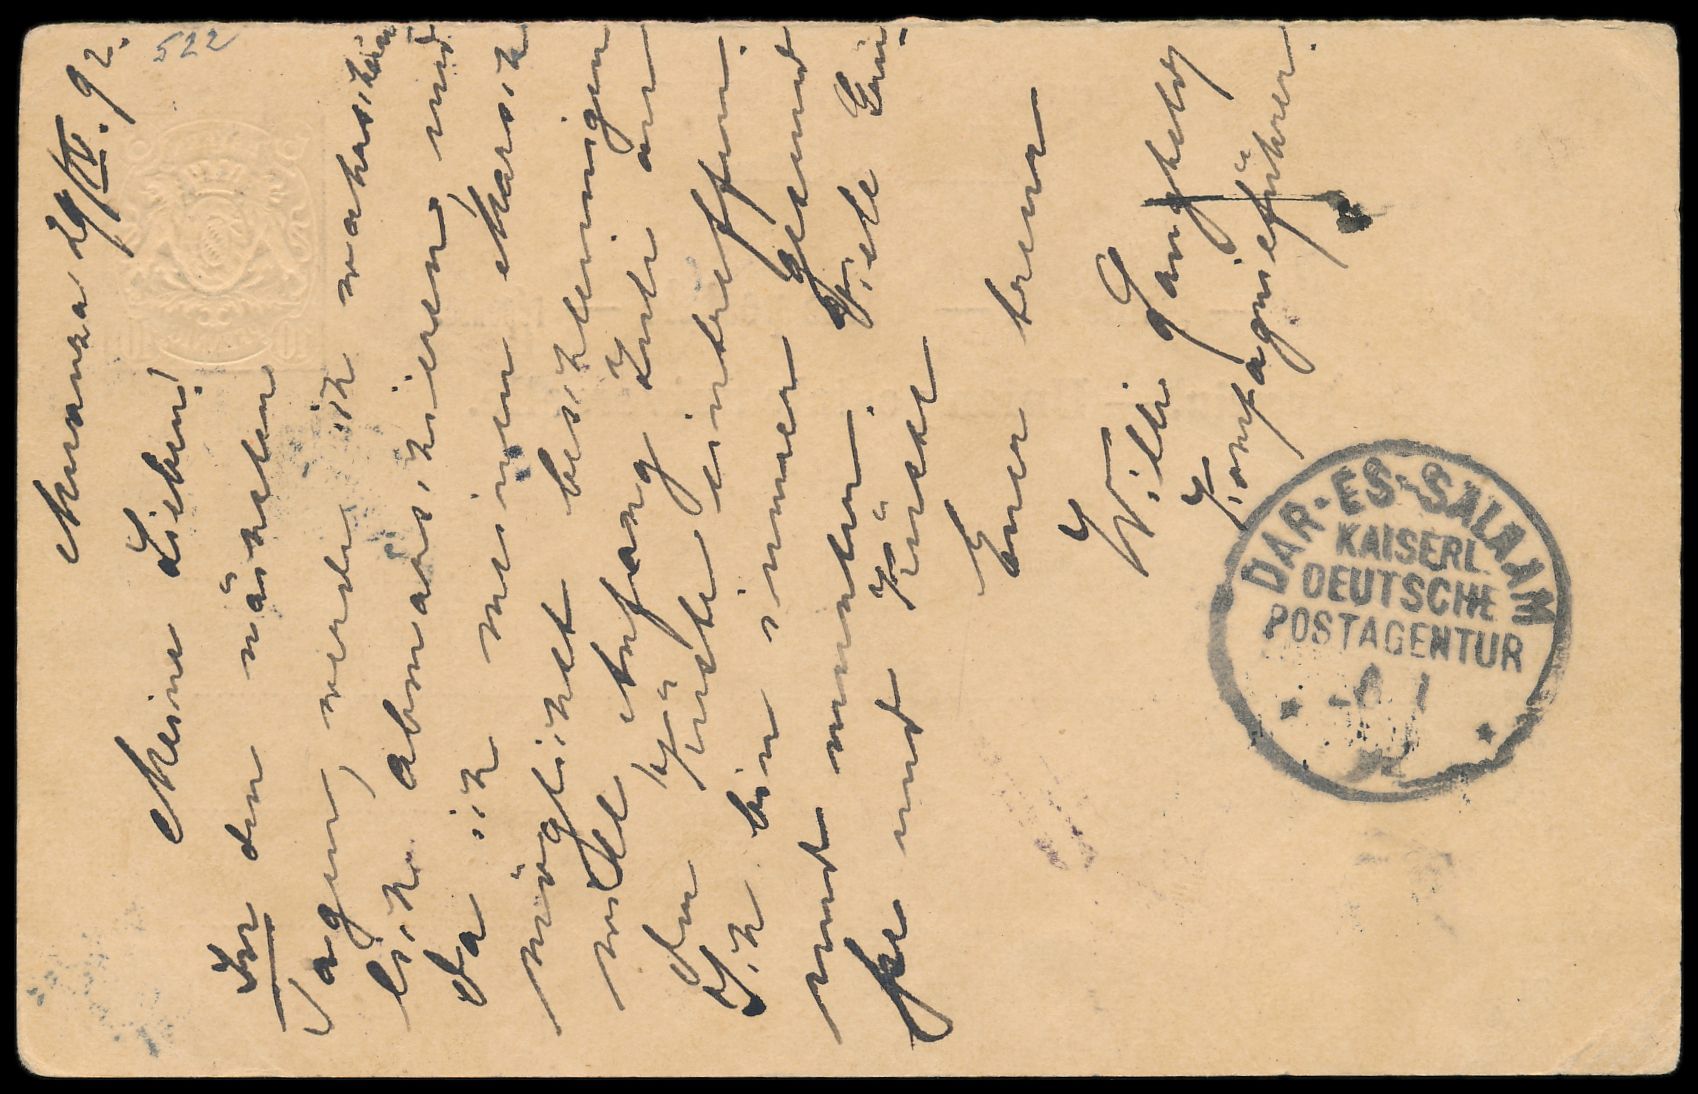 522
Muansa, 29/IV. 92.
Meine Lieben!
In den nächsten
Tagen, werde ich wahrschein
lich abmarschieren, und
da ich meinen Marsch
möglichst beschleunigen
will Anfang Juli an
der Küste eintreffen.
Ich bin immer gesund
und munter. Viele Grü-
ße und Küsse
Euer treuer
Willi Langheld
Kompagnieführer.
DAR-ES-SALAAM
KAISERL.
DEUTSCHE
POSTAGENTUR